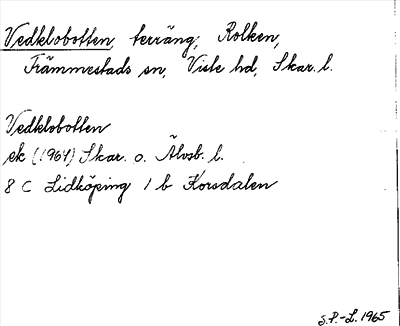 Vedklobotten, terräng, Rolken,
Främmestads sn, Viste hd, Skar. l.
Vedklobotten
ek (1964) Skar. o. Älvsb. l.
8 C Lidköping 1 b Korsdalen
S.P.-L. 1965